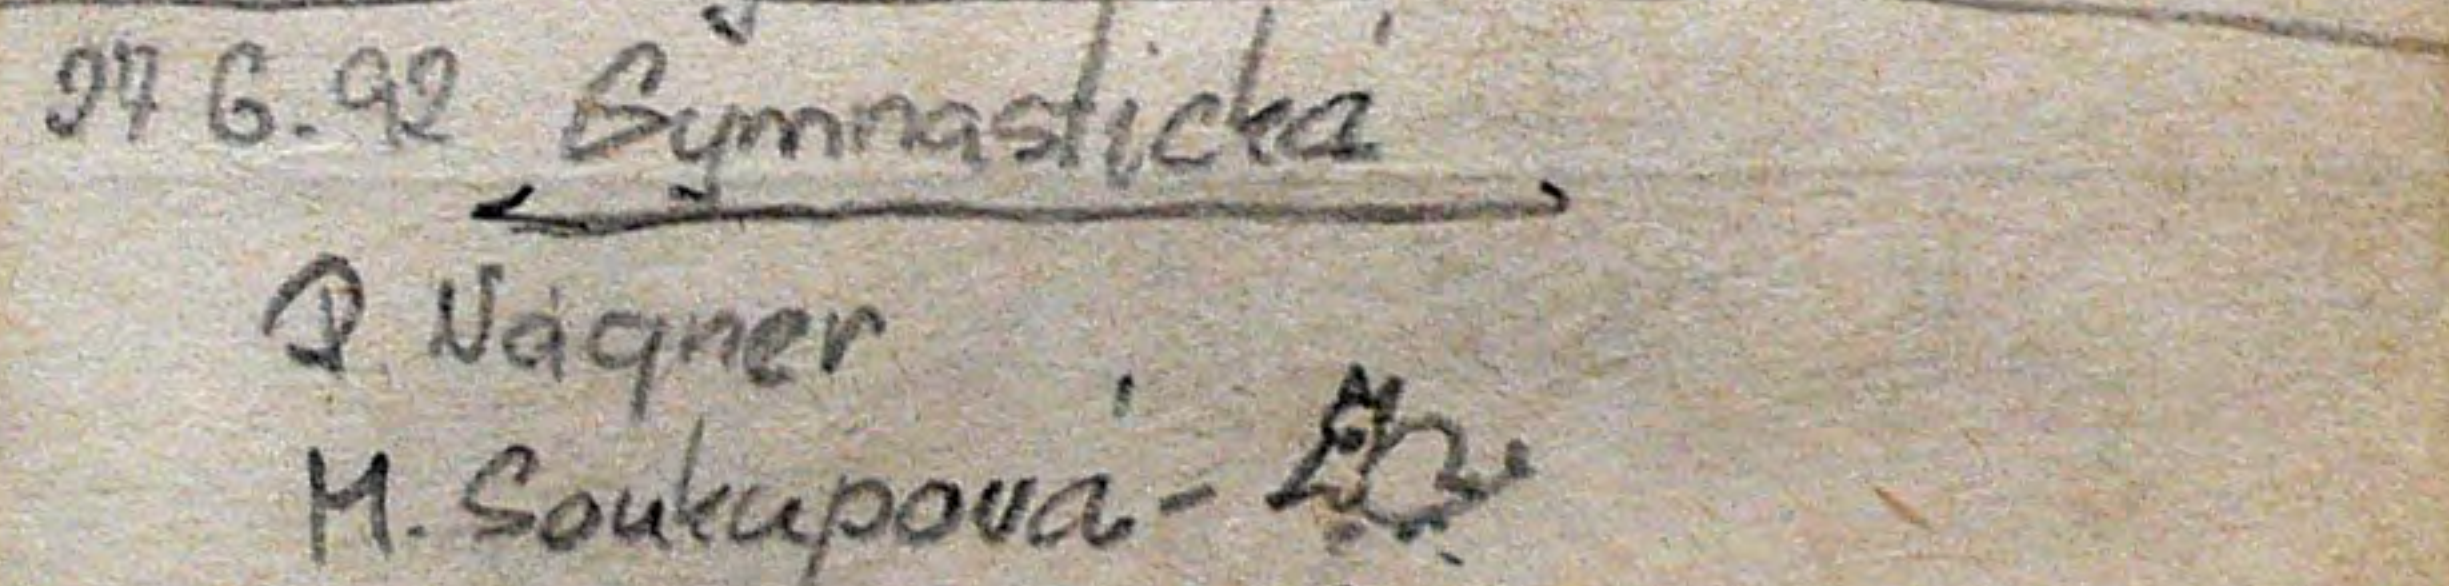 27 6. 92 Gymnastická
P. Vágner
M. Soukupová -